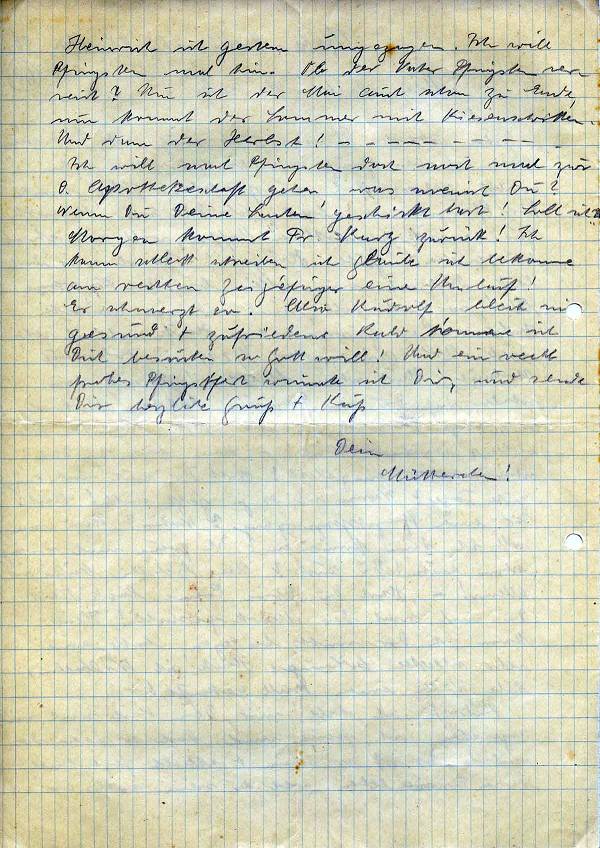 Heinrich ist gestern umgezogen. Ich will
Pfingsten mal hin. Ob der Vater Pfingsten ver
reist? Nun ist der Mai auch schon zu Ende
nun kommt der Sommer mit Riesenschritten.
Und dann der Herbst! – – – – – – – –
Ich will mal Pfingsten doch noch mal zur
gehen was meinst Du?
wenn Du Deine geschickt hast! Soll ich
Morgen kommt Fr. Kurz zurück! Ich
kann schlecht schreiben ich glaube ich bekomme
am rechten Zeigefinger eine Umlauf!
Er schmerzt so. Also Rudolf bleib mir
gesund + zufrieden. Bald komme ich
Dich besuchen so Gott will! Und ein recht
frohes Pfingstfest wünsche ich Dir, und sende
Dir herzliche Grüß + Küß
Dein
Mütterchen!